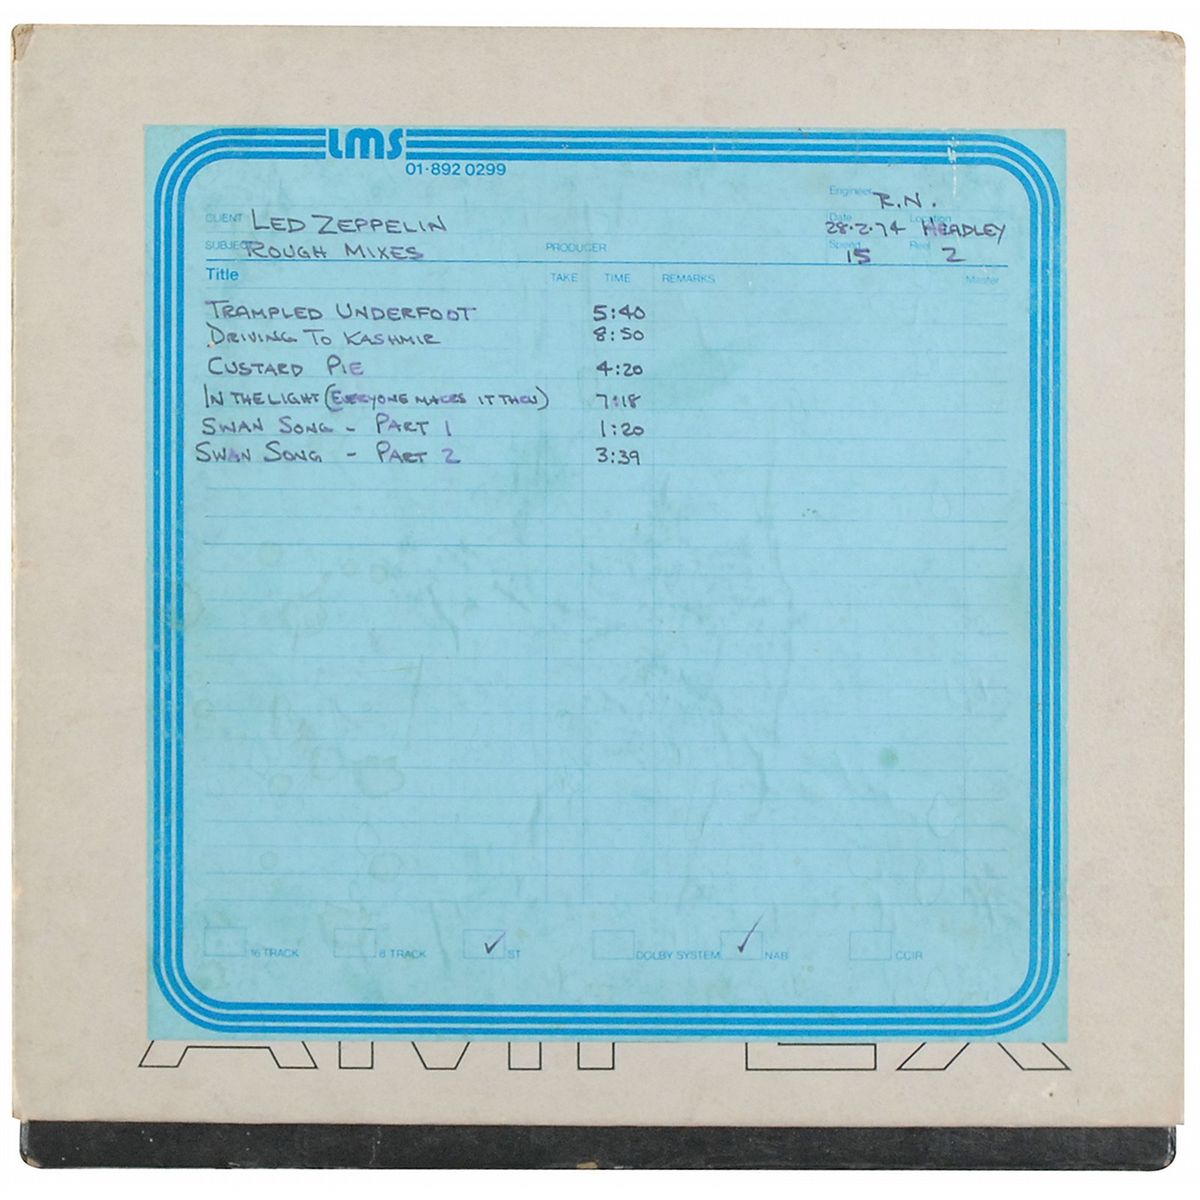 LMS
01-892 0299
Engineer R.N.
CLIENT LED ZEPPELIN
Date Location
28·2·74 HEADLEY
SUBJECT ROUGH MIXES PRODUCER
Speed 15 Reel 2
Title TAKE TIME REMARKS Master
TRAMPLED UNDERFOOT 5:40
DRIVING TO KASHMIR 8:50
CUSTARD PIE 4:20
IN THE LIGHT (EVERYONE MAKES IT THRU) 7:18
SWAN SONG - PART 1 1:20
SWAN SONG - PART 2 3:39
16 TRACK 8 TRACK ✓ ST DOLBY SYSTEM ✓ NAB CCIR
AMPEX